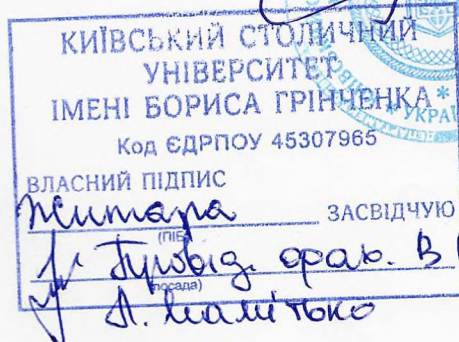 КИЇВСЬКИЙ СТОЛИЧНИЙ
УНІВЕРСИТЕТ
ІМЕНІ БОРИСА ГРІНЧЕНКА
* УКРАЇ
Код ЄДРПОУ 45307965
ВЛАСНИЙ ПІДПИС
ЗАСВІДЧУЮ
(ПІБ)
Провід. фах. В
(посада)